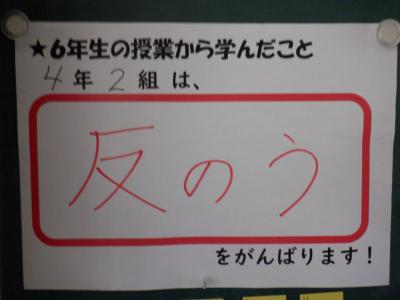 ★6年生の授業から学んだこと
4年2組は、
反のう
をがんばります!